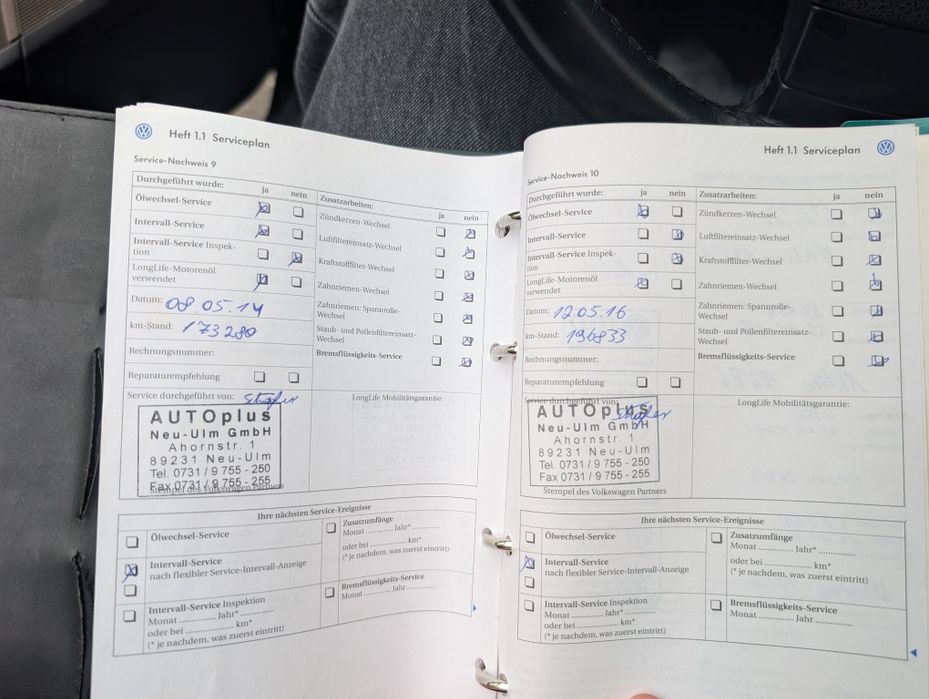 Heft 1.1 Serviceplan
Service-Nachweis 9
Durchgeführt wurde:
ja nein
Ölwechsel-Service
Intervall-Service
Intervall-Service Inspek-
tion
LongLife-Motorenöl
verwendet
Datum: 08.05.14
km-Stand: 173280
Rechnungsnummer:
Reparaturempfehlung
Zusatzarbeiten:
ja nein
Zündkerzen-Wechsel
Luftfiltereinsatz-Wechsel
Kraftstofffilter-Wechsel
Zahnriemen-Wechsel
Zahnriemen: Spannrolle-
Wechsel
Staub- und Pollenfiltereinsatz-
Wechsel
Bremsflüssigkeits-Service
Service durchgeführt von:
AUTOplus
Neu-Ulm GmbH
Ahornstr. 1
89231 Neu-Ulm
Tel. 0731 / 9 755 - 250
Fax 0731 / 9 755 - 251
Stempel des Volkswagen Partners
LongLife Mobilitätsgarantie:
Ihre nächsten Service-Ereignisse
Ölwechsel-Service
Intervall-Service
nach flexibler Service-Intervall-Anzeige
Intervall-Service Inspektion
Monat .............. Jahr* ..............
oder bei .............. km*
(* je nachdem, was zuerst eintritt)
Zusatzumfänge
Monat .............. Jahr* ..............
oder bei .............. km*
(* je nachdem, was zuerst eintritt)
Bremsflüssigkeits-Service
Monat .............. Jahr ..............
Heft 1.1 Serviceplan
Service-Nachweis 10
Durchgeführt wurde:
ja nein
Ölwechsel-Service
Intervall-Service
Intervall-Service Inspek-
tion
LongLife-Motorenöl
verwendet
Datum: 12.05.16
km-Stand: 196833
Rechnungsnummer:
Reparaturempfehlung
Zusatzarbeiten:
ja nein
Zündkerzen-Wechsel
Luftfiltereinsatz-Wechsel
Kraftstofffilter-Wechsel
Zahnriemen-Wechsel
Zahnriemen: Spannrolle-
Wechsel
Staub- und Pollenfiltereinsatz-
Wechsel
Bremsflüssigkeits-Service
Service durchgeführt von:
AUTOplus
Neu-Ulm GmbH
Ahornstr. 1
89231 Neu-Ulm
Tel. 0731 / 9 755 - 250
Fax 0731 / 9 755 - 251
Stempel des Volkswagen Partners
LongLife Mobilitätsgarantie:
Ihre nächsten Service-Ereignisse
Ölwechsel-Service
Intervall-Service
nach flexibler Service-Intervall-Anzeige
Intervall-Service Inspektion
Monat .............. Jahr* ..............
oder bei .............. km*
(* je nachdem, was zuerst eintritt)
Zusatzumfänge
Monat .............. Jahr* ..............
oder bei .............. km*
(* je nachdem, was zuerst eintritt)
Bremsflüssigkeits-Service
Monat .............. Jahr ..............